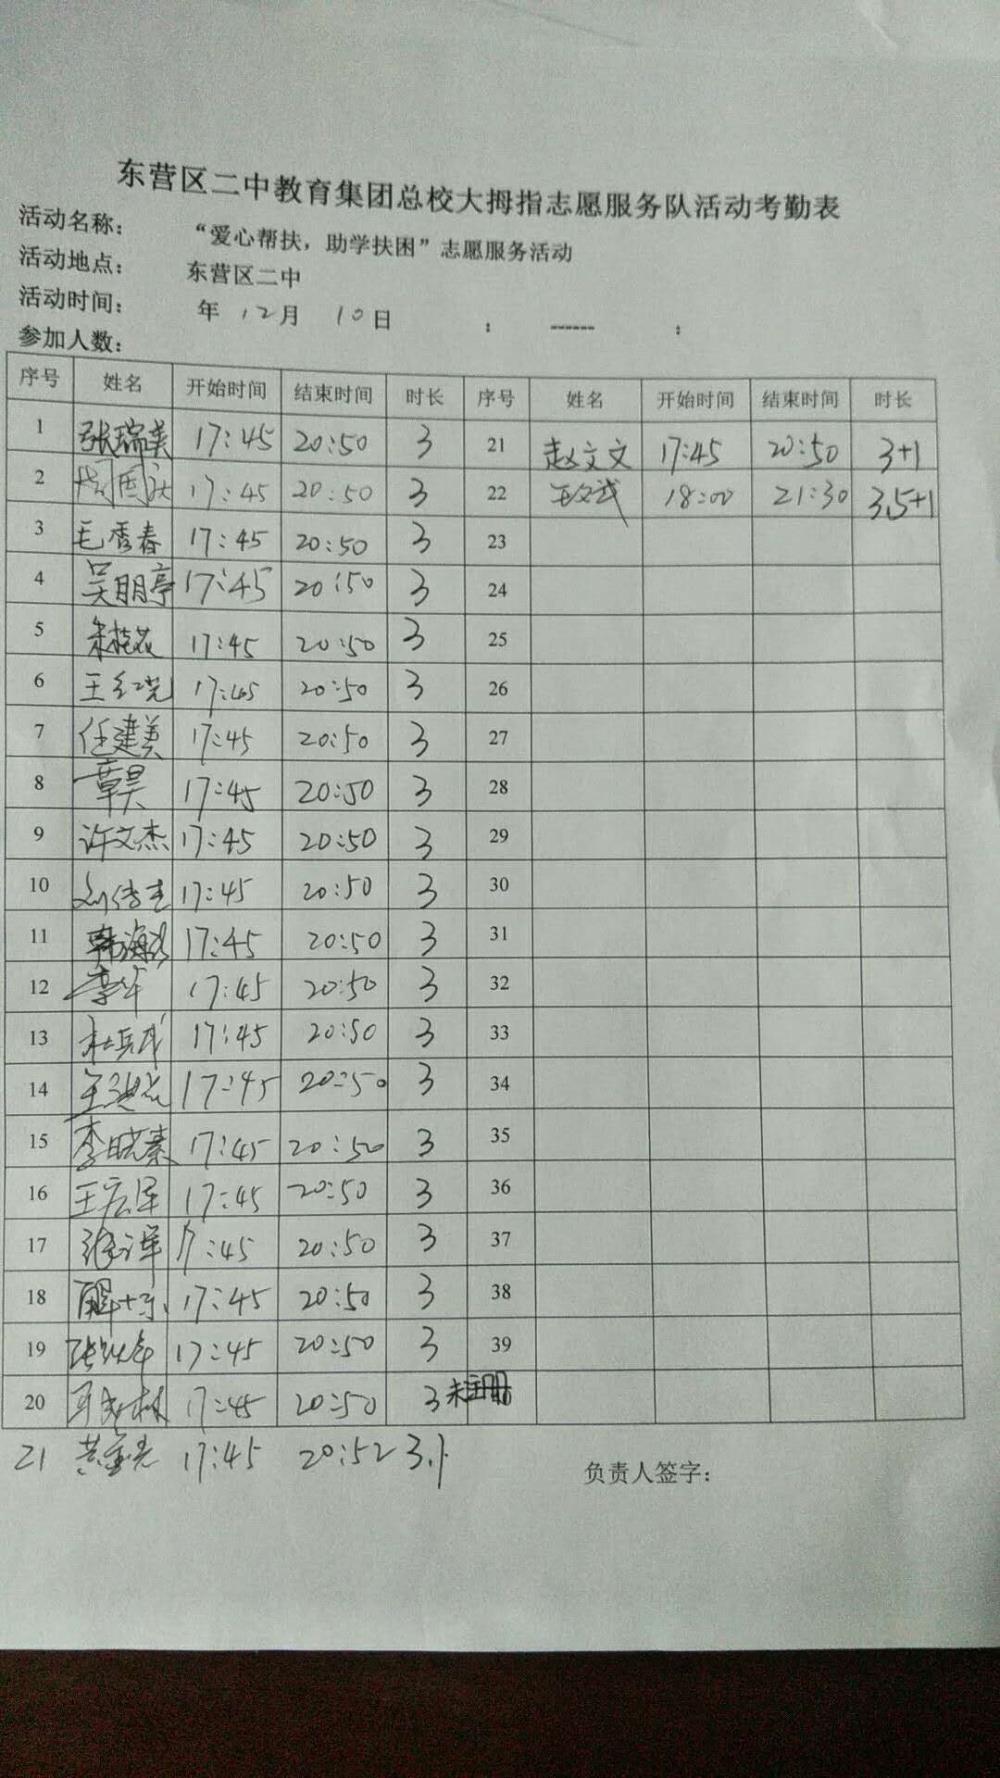 东营区二中教育集团总校大拇指志愿服务队活动考勤表
活动名称： “爱心帮扶，助学扶困”志愿服务活动
活动地点： 东营区二中
活动时间： 年 12月 10日 : ------ :
参加人数：
序号 姓名 开始时间 结束时间 时长 序号 姓名 开始时间 结束时间 时长
1 张瑞美 17:45 20:50 3 21 赵文文 17:45 20:50 3+1
2 17:45 20:50 3 22 18:00 21:30 3.5+1
3 毛秀春 17:45 20:50 3 23
4 吴朋亭 17:45 20:50 3 24
5 朱桂花 17:45 20:50 3 25
6 王红亮 17:45 20:50 3 26
7 任建美 17:45 20:50 3 27
8 17:45 20:50 3 28
9 许文杰 17:45 20:50 3 29
10 17:45 20:50 3 30
11 17:45 20:50 3 31
12 李华 17:45 20:50 3 32
13 杜兵武 17:45 20:50 3 33
14 17:45 20:50 3 34
15 李晓素 17:45 20:50 3 35
16 王宏军 17:45 20:50 3 36
17 17:45 20:50 3 37
18 17:45 20:50 3 38
19 17:45 20:50 3 39
20 17:45 20:50 3 未注册
21 17:45 20:52 3.1
负责人签字：